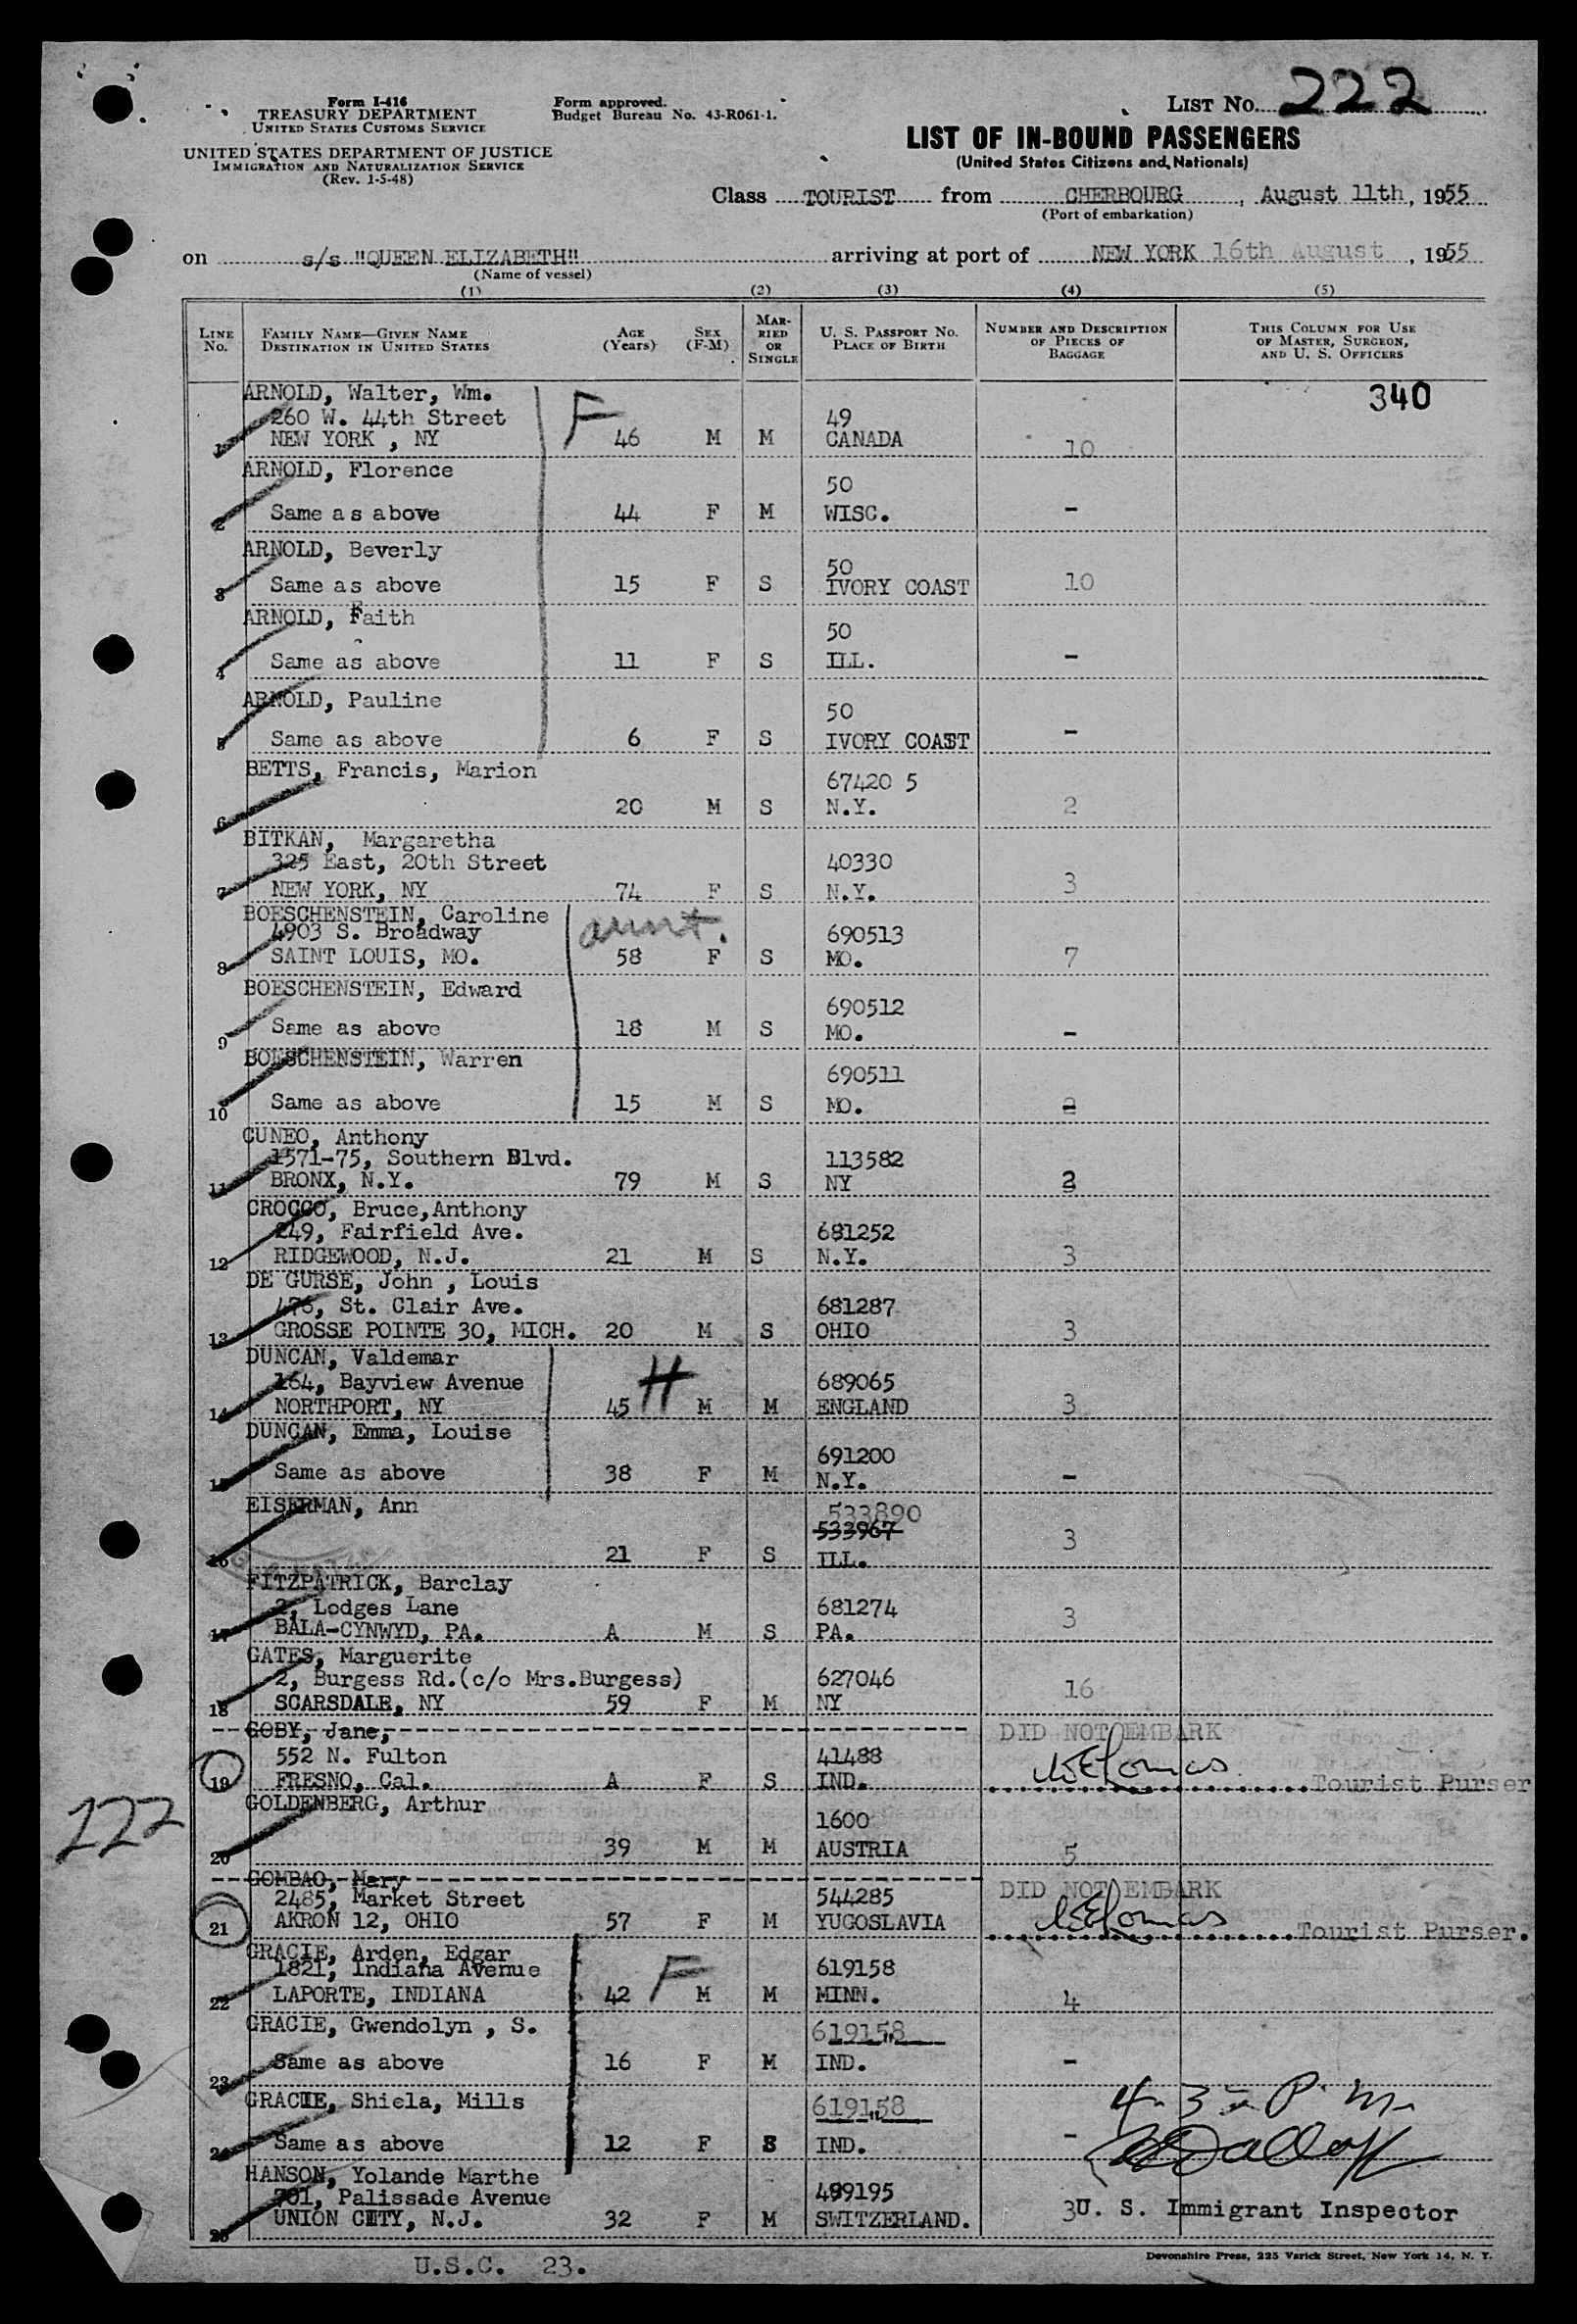 Form I-416
TREASURY DEPARTMENT
UNITED STATES CUSTOMS SERVICE
UNITED STATES DEPARTMENT OF JUSTICE
IMMIGRATION AND NATURALIZATION SERVICE
(Rev. 1-5-48)
Form approved.
Budget Bureau No. 43-R061-1.
LIST NO. 222
LIST OF IN-BOUND PASSENGERS
(United States Citizens and Nationals)
Class TOURIST from CHERBOURG, August 11th, 1955
(Port of embarkation)
on s/s "QUEEN ELIZABETH" arriving at port of NEW YORK 16th August, 1955
(Name of vessel)
(1) (2) (3) (4) (5)
LINE NO. FAMILY NAME—GIVEN NAME DESTINATION IN UNITED STATES AGE (Years) SEX (F-M) MARRIED OR SINGLE U. S. PASSPORT NO. PLACE OF BIRTH NUMBER AND DESCRIPTION OF PIECES OF BAGGAGE THIS COLUMN FOR USE OF MASTER, SURGEON, AND U. S. OFFICERS
340
ARNOLD, Walter, Wm.
260 W. 44th Street F 49
1 NEW YORK , NY 46 M M CANADA 10
ARNOLD, Florence
50
2 Same as above 44 F M WISC. -
ARNOLD, Beverly
50
3 Same as above 15 F S IVORY COAST 10
ARNOLD, Faith
50
4 Same as above 11 F S ILL. -
ARNOLD, Pauline
50
5 Same as above 6 F S IVORY COAST -
BETTS, Francis, Marion
67420 5
6 20 M S N.Y. 2
BITKAN, Margaretha
325 East, 20th Street 40330
7 NEW YORK, NY 74 F S N.Y. 3
BOESCHENSTEIN, Caroline aunt.
4903 S. Broadway 690513
8 SAINT LOUIS, MO. 58 F S MO. 7
BOESCHENSTEIN, Edward
690512
9 Same as above 18 M S MO. -
BOESCHENSTEIN, Warren
690511
10 Same as above 15 M S MO.
CUNEO, Anthony
1571-75, Southern Blvd. 113582
11 BRONX, N.Y. 79 M S NY
CROCCO, Bruce,Anthony
249, Fairfield Ave. 681252
12 RIDGEWOOD, N.J. 21 M S N.Y. 3
DE GURSE, John , Louis
476, St. Clair Ave. 681287
13 GROSSE POINTE 30, MICH. 20 M S OHIO 3
DUNCAN, Valdemar
164, Bayview Avenue H 689065
14 NORTHPORT, NY 45 M M ENGLAND 3
DUNCAN, Emma, Louise
691200
15 Same as above 38 F M N.Y. -
EISERMAN, Ann 533890
533967
16 21 F S ILL. 3
FITZPATRICK, Barclay
2, Lodges Lane 681274
17 BALA-CYNWYD, PA. A M S PA. 3
GATES, Marguerite
2, Burgess Rd.(c/o Mrs.Burgess) 627046
18 SCARSDALE, NY 59 F M NY 16
GOBY, Jane, DID NOT EMBARK
552 N. Fulton 41488
19 FRESNO, Cal. A F S IND. Tourist Purser
GOLDENBERG, Arthur
222 1600
20 39 M M AUSTRIA 5
GOMBAO, Mary DID NOT EMBARK
2485, Market Street 544285
21 AKRON 12, OHIO 57 F M YUGOSLAVIA Tourist Purser.
GRACIE, Arden, Edgar
1821, Indiana Avenue F 619158
22 LAPORTE, INDIANA 42 M M MINN. 4
GRACIE, Gwendolyn , S. 619158
"
23 Same as above 16 F M IND. -
GRACIE, Shiela, Mills 619158
"
24 Same as above 12 F S IND. -
4-3 P.M.
HANSON, Yolande Marthe
701, Palissade Avenue 499195
25 UNION CITY, N.J. 32 F M SWITZERLAND. 3
U. S. Immigrant Inspector
U.S.C. 23.
Devonshire Press, 225 Varick Street, New York 14, N. Y.